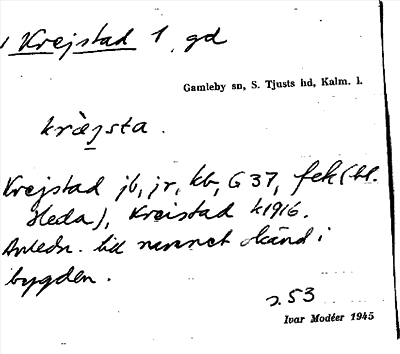 Krejstad 1 gd
Gamleby sn, S. Tjusts hd, Kalm. l.
kràe̠jsta.
Krejstad jb, jr, kb, G 37, fek (bl.
Heda), Kreistad k1916.
Anledn. till namnet okänd i
bygden.
s. 53
Ivar Modéer 1945